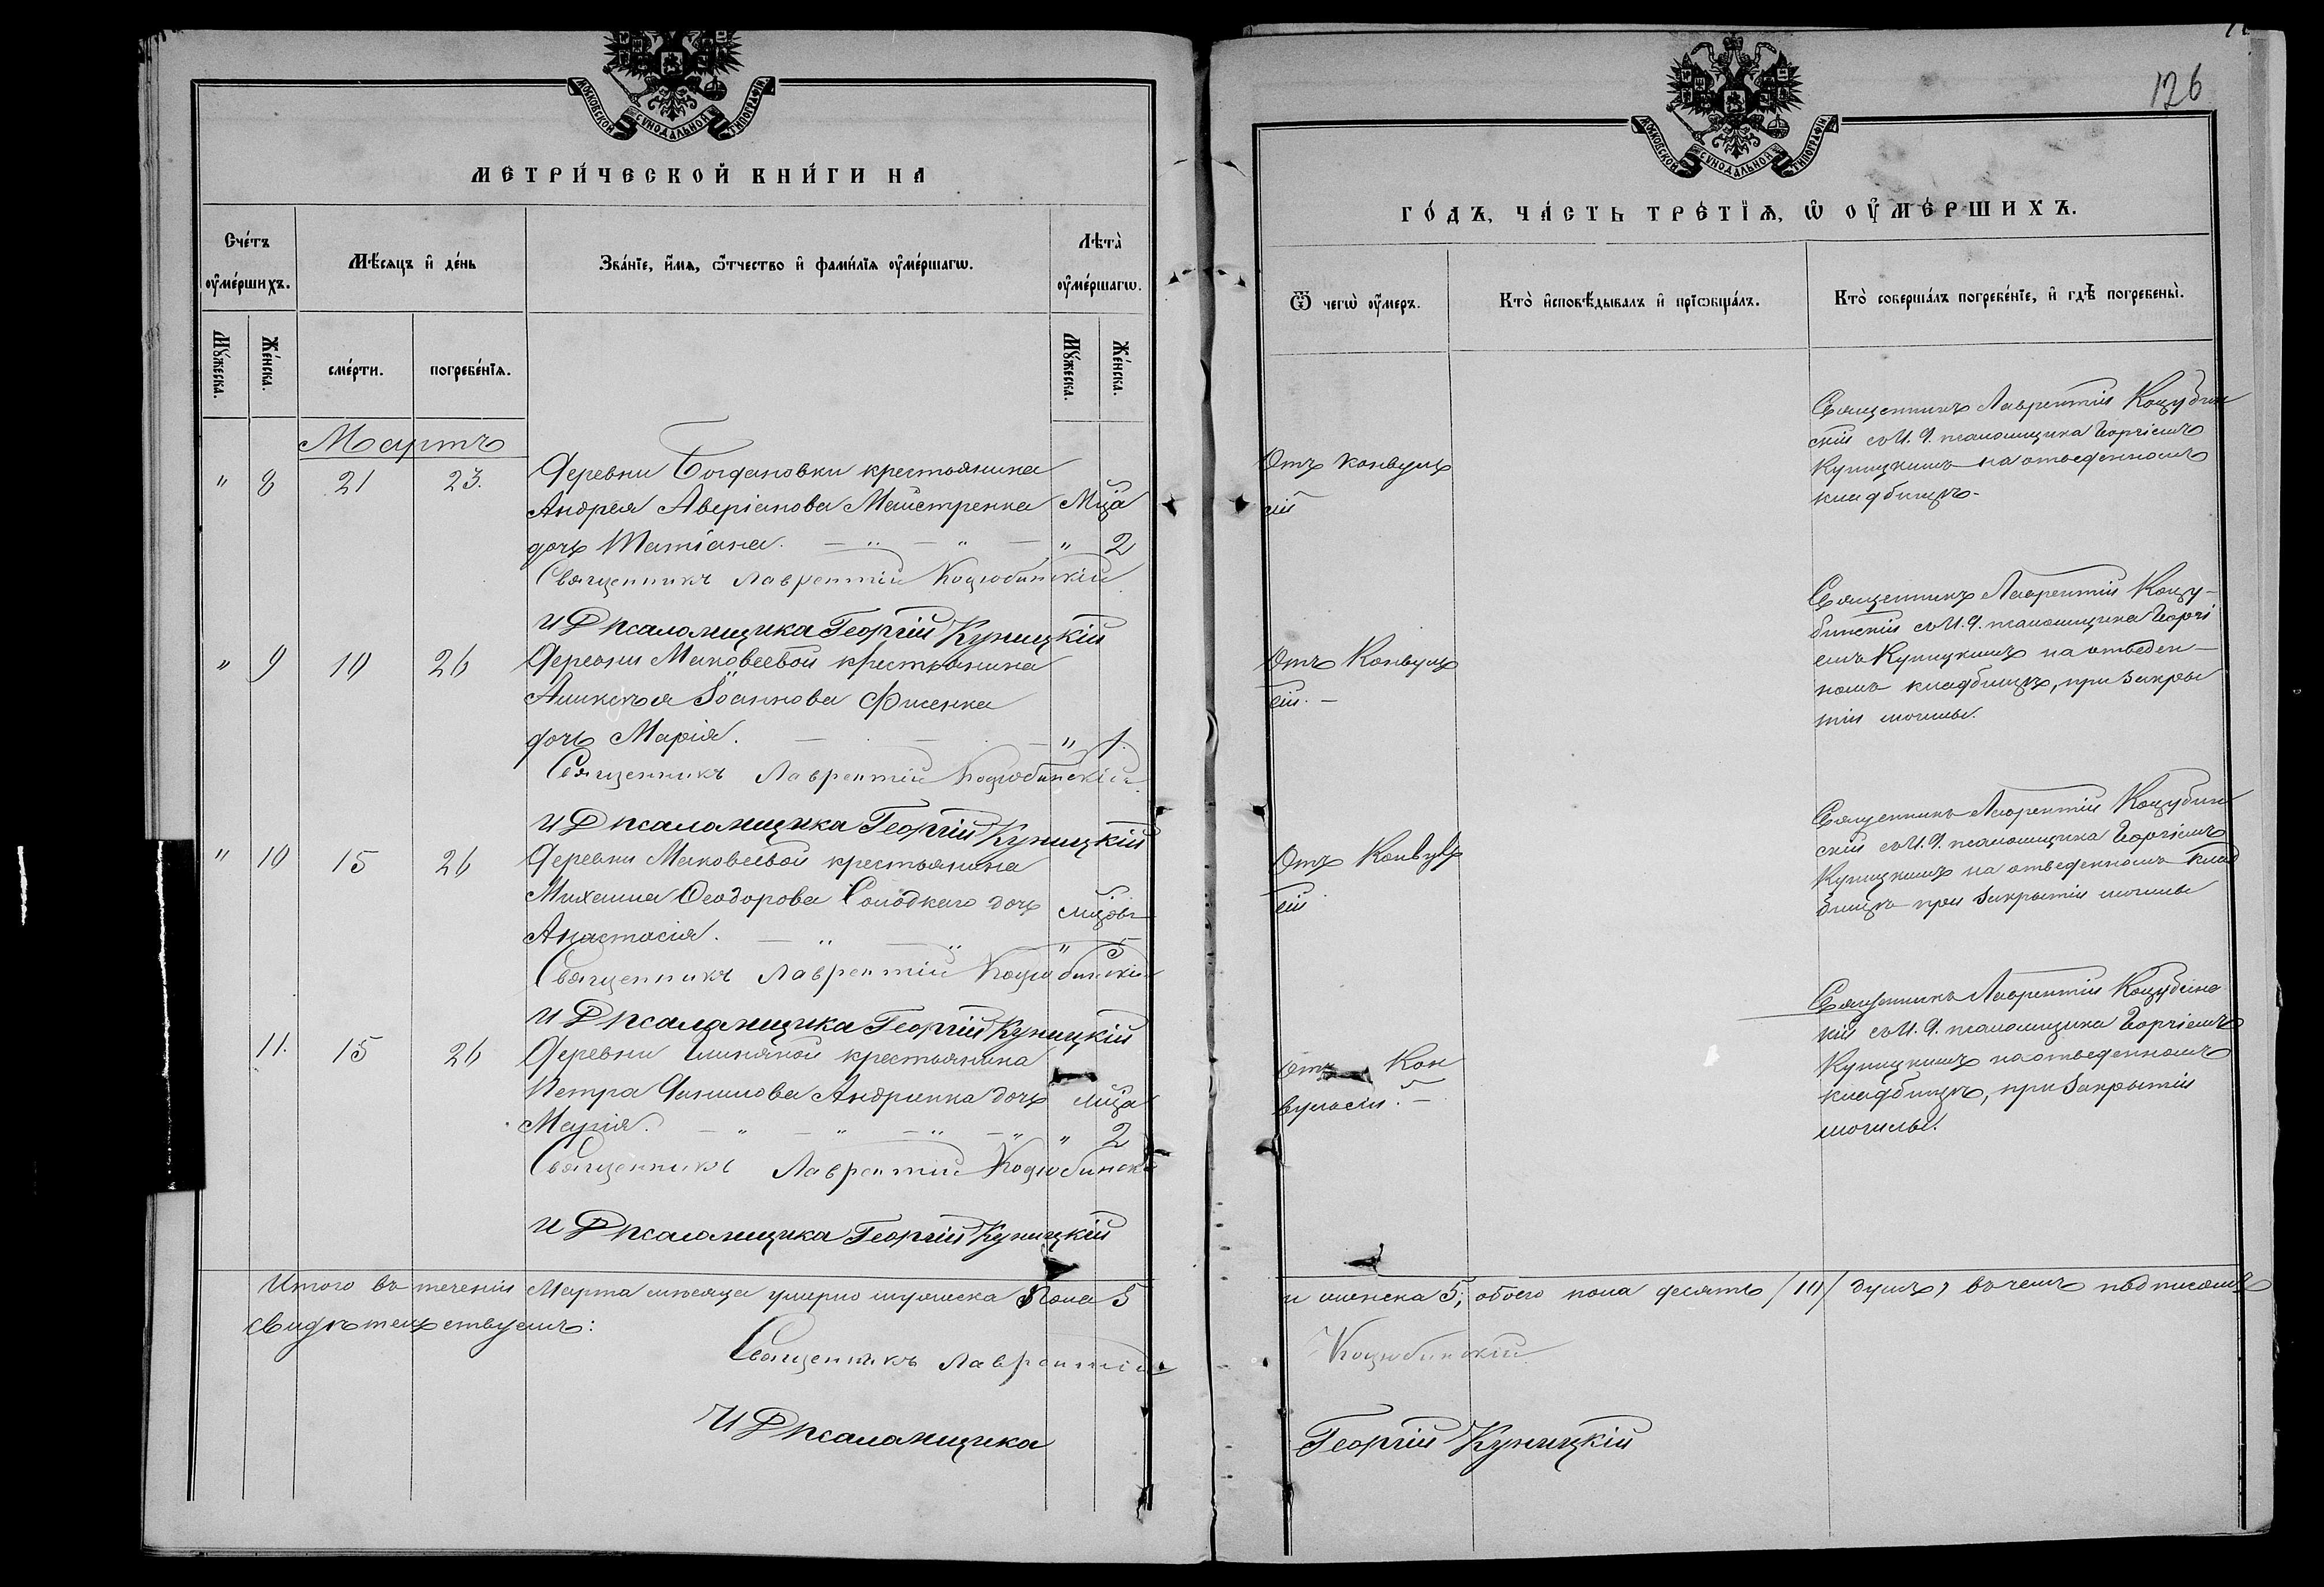 МОСКОВСКОЙ СѴНОДАЛЬНОЙ ТИПОГРАФІИ
МЕТРИ́ЧЕСКОЙ КНИ́ГИ НА
Сче́тъ ᲂу҆ме́ршихъ.
Мѣ́сяцъ и҆ де́нь
Зва́нїе, и҆́мѧ, ѻ҆́тчество и҆ фами́лїѧ ᲂу҆ме́ршагѡ.
Лѣ́та ᲂу҆ме́ршагѡ.
Мꙋ́жеска.
Же́нска.
сме́рти.
погребе́нїѧ.
Мꙋ́жеска.
Же́нска.
Мартъ
" 8 21 23. Деревни Богдановки крестьянина
Андрея Аверіанова Майстренка Мца
дочь Татіана. — " — " — " 2
Священникъ Лаврентій Коцюбинскій
И Д псаломщика Георгій Куницкій
" 9 19 26 Деревни Маковеевой крестьянина
Алексѣя Іоаннова Фисенка
дочь Марія. — . — . — " 1.
Священникъ Лаврентій Коцюбинскій
И Д псаломщика Георгій Куницкій
" 10 15 26 Деревни Маковеевой крестьянина
Михаила Ѳеодорова Солодкаго дочь мцовъ
Анастасія. — " — " " 5
Священникъ Лаврентій Коцюбинскій
И Д псаломщика Георгій Куницкій
11. 15 26 Деревни крестьянина
Петра Данилова Андринка дочь мца
Марія. — " — " — " — " " 2
Священникъ Лаврентій Коцюбинскі
И Д псаломщика Георгій Куницкій
Итого въ теченіи Марта мѣсяца умерло мужеска пола 5
свидѣтельствуемъ:
Священникъ Лаврентій
И Д псаломщика
126
МОСКОВСКОЙ СѴНОДАЛЬНОЙ ТИПОГРАФІИ
ГО́ДЪ, ЧА́СТЬ ТРЕ́ТЇѦ, Ѡ҆ ᲂУ҆МЕ́РШИХЪ.
Ѿ чегѡ̀ ᲂу҆́меръ.
Кто̀ и҆сповѣ́дывалъ и҆ прїѡбща́лъ.
Кто̀ соверша́лъ погребе́нїе, и҆ гдѣ̀ погребены̀.
Отъ конвуль
сій
Священникъ Лаврентій Коцубин
скій съ И. Д. псаломщика Георгіемъ
Куницкимъ на отведенномъ
кладбищѣ.
Отъ Конвуль
сіи. —
Священникъ Лаврентій Коцу-
бинскій съ И. Д. псаломщика Георгі
емъ Куницкимъ на отведен—
номъ кладбищѣ, при закры
тіи могилы.
Отъ Конвуль
сіи
Священникъ Лаврентій Коцубин
скій съ И. Д. псаломщика Георгіемъ
Куницкимъ на отведенномъ клад
бищѣ при закрытіи могилы
отъ Кон
вульсіи. —
Священникъ Лаврентій Коцубинс
кій съ И. Д. псаломщика Георгіемъ
Куницкимъ на отведенномъ
кладбищѣ, при закрытіи
могилы.
и женска 5; обоего пола десять /10/ душъ, въ чемъ подписомъ
Коцюбинскій
Георгій Куницкій